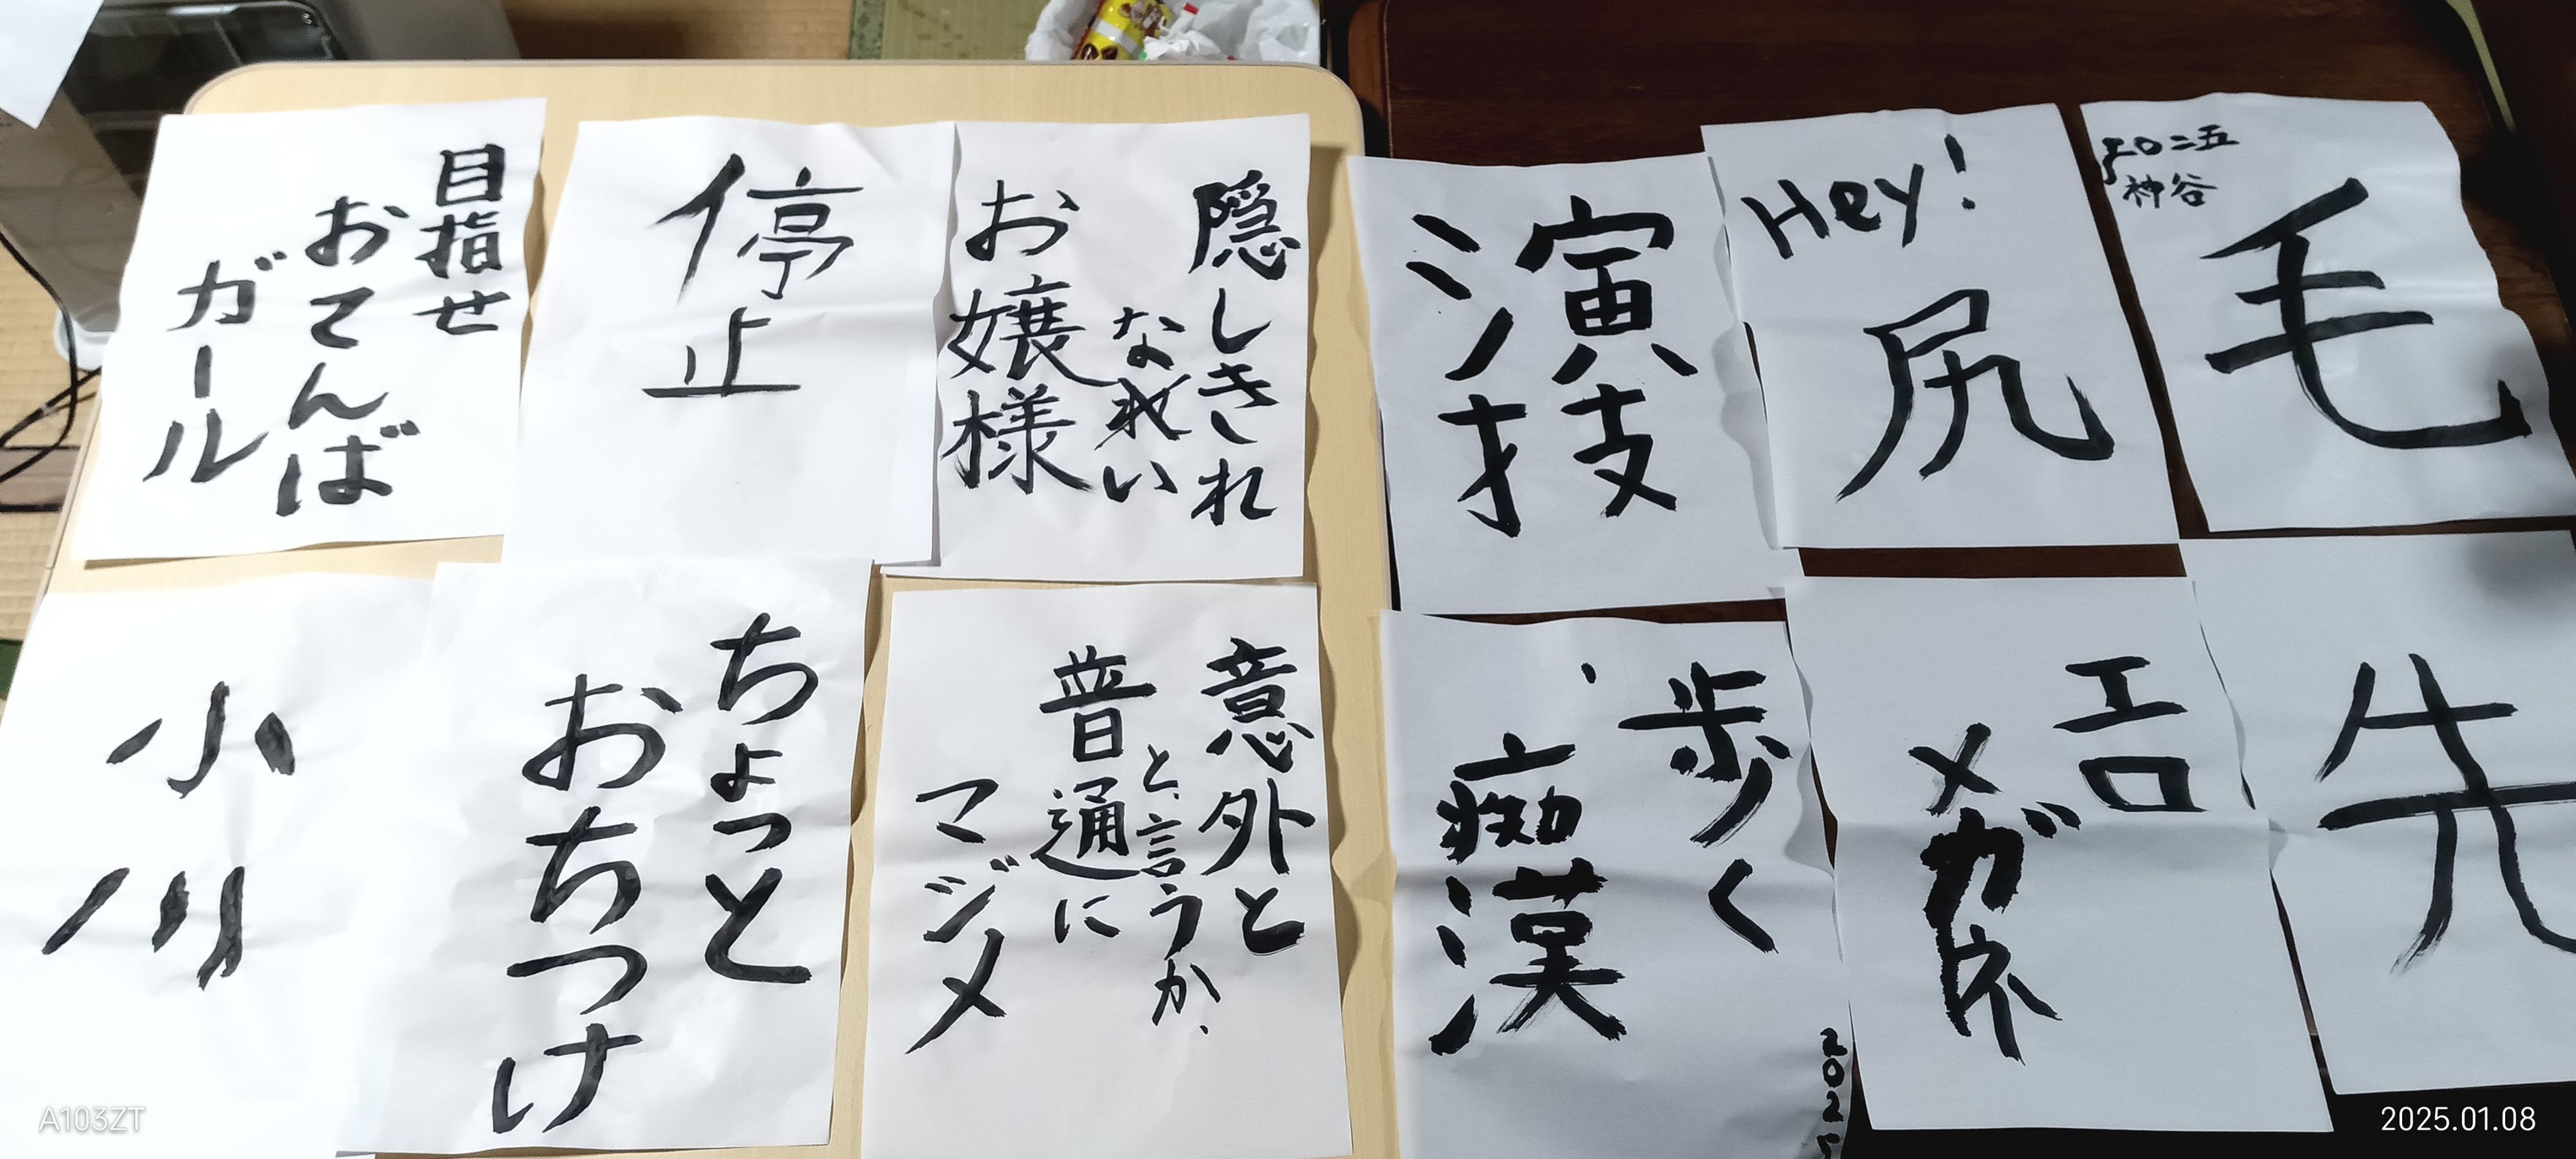 目指せ
おてんば
ガール
停止
隠しきれ
なれい
お嬢様
演技
Hey!
尻
二〇二五
神谷
毛
小川
ちょっと
おちつけ
意外と
と、言うか、
普通に
マジメ
歩く
痴漢
2025
エロ
メガネ
先
A103ZT
2025.01.08